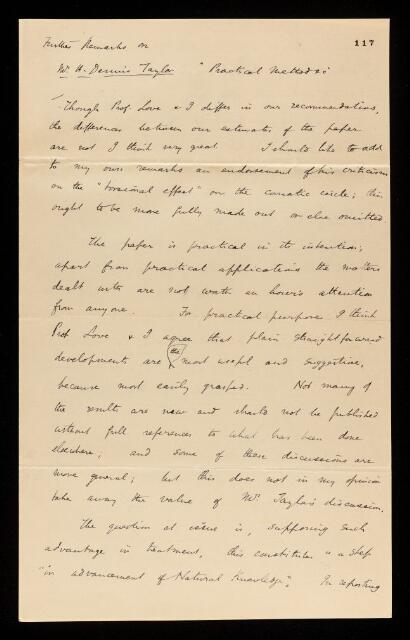 Further Remarks on
117
Mr. H. Dennis Taylor "Practical Methods &c
Though Prof. Love & I differ in our recommendations,
the differences between our estimates of the paper
are not I think very great. I should like to add
to my own remarks an endorsement of his criticism
on the "torsional effect" on the comatic circle; this
ought to be more fully made out or else omitted
The paper is practical in its intention;
apart from practical applications the matters
dealt with are not worth an hour's attention
from anyone. For practical purpose I think
Prof Love & I agree that plain straightforward
developments are the most useful and suggestive,
because most easily grasped. Not many of
the results are new and should not be published
without full references to what has been done
elsewhere; and some of these discussions are
more general; but this does not in my opinion
take away the value of Mr. Taylor's discussion.
The question at issue is, supposing such
advantage in treatment, this constitutes "a step
in advancement of Natural Knowledge". In reporting